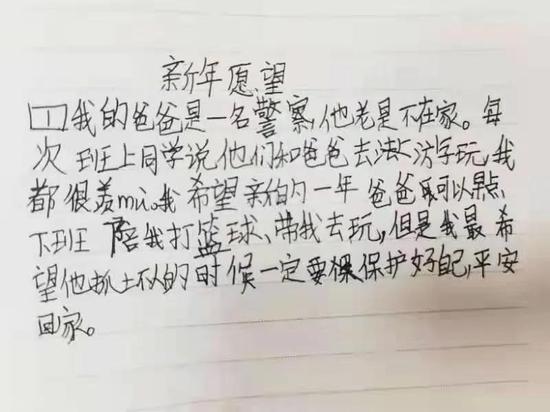 新年愿望
我的爸爸是一名警察,他老是不在家。每
次班上同学说他们和爸爸去游玩,我
都很羡mù。我希望新的一年爸爸可以早点
下班陪我打篮球、带我去玩,但是我最希
望他抓坏人的时候一定要保护好自己,平安
回家。